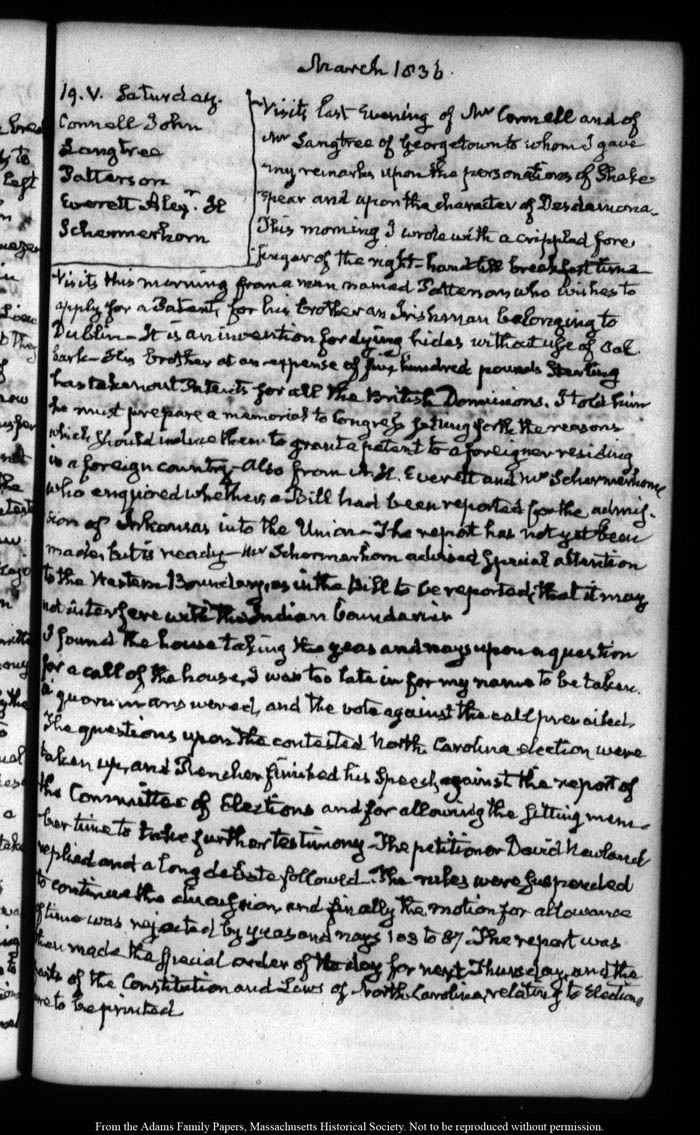 March 1836.
19. V. Saturday.
Connell John
Langtree
Patterson
Everett Alexr. H
Schermerhorn
Visits last Evening of Mr Connell and of
Mr Langtree of Georgetown to whom I gave
my remarks upon the personations of Shake-
spear and upon the character of Desdemona.
This morning I wrote with a crippled fore
finger of the right-hand till breakfast time
Visits this morning from a man named Patterson who wishes to
apply for a Patent, for his brother an Irishman belonging to
Dublin— It is an invention for dying hides without use of oak
bark— His brother at an expense of five hundred pounds Sterling
has taken out Patents for all the British Dominions. I told him
he must prepare a memorial to Congress setting forth the reasons
which should induce them to grant a patent to a foreigner residing
in a foreign country— Also from A. H. Everett and Mr Schermerhorn
who enquired whether a Bill had been reported for the admis-
sion of Arkansas into the Union— The report has not yet been
made, but is ready— Mr Schermerhorn advised special attention
to the Western Boundary, as in the Bill to be reported, that it may
not interfere with the Indian boundaries
I found the house taking the yeas and nays upon a question
for a call of the house, I was too late in for my name to be taken.
a quorum answered, and the vote against the call prevailed.
The questions upon the contested North Carolina election were
taken up, and Rencher finished his Speech, against the report of
the Committee of Elections and for allowing the sitting mem-
ber time to take further testimony— The petitioner David Newland
replied and a long debate followed. The rules were suspended
to continue the discussion, and finally the motion for allowance
of time was rejected by yeas and nays 103 to 87. The report was
then made the special order of the day for next Thursday, and the
parts of the Constitution and Laws of North Carolina, relating to Elections
are to be printed
From the Adams Family Papers, Massachusetts Historical Society. Not to be reproduced without permission.